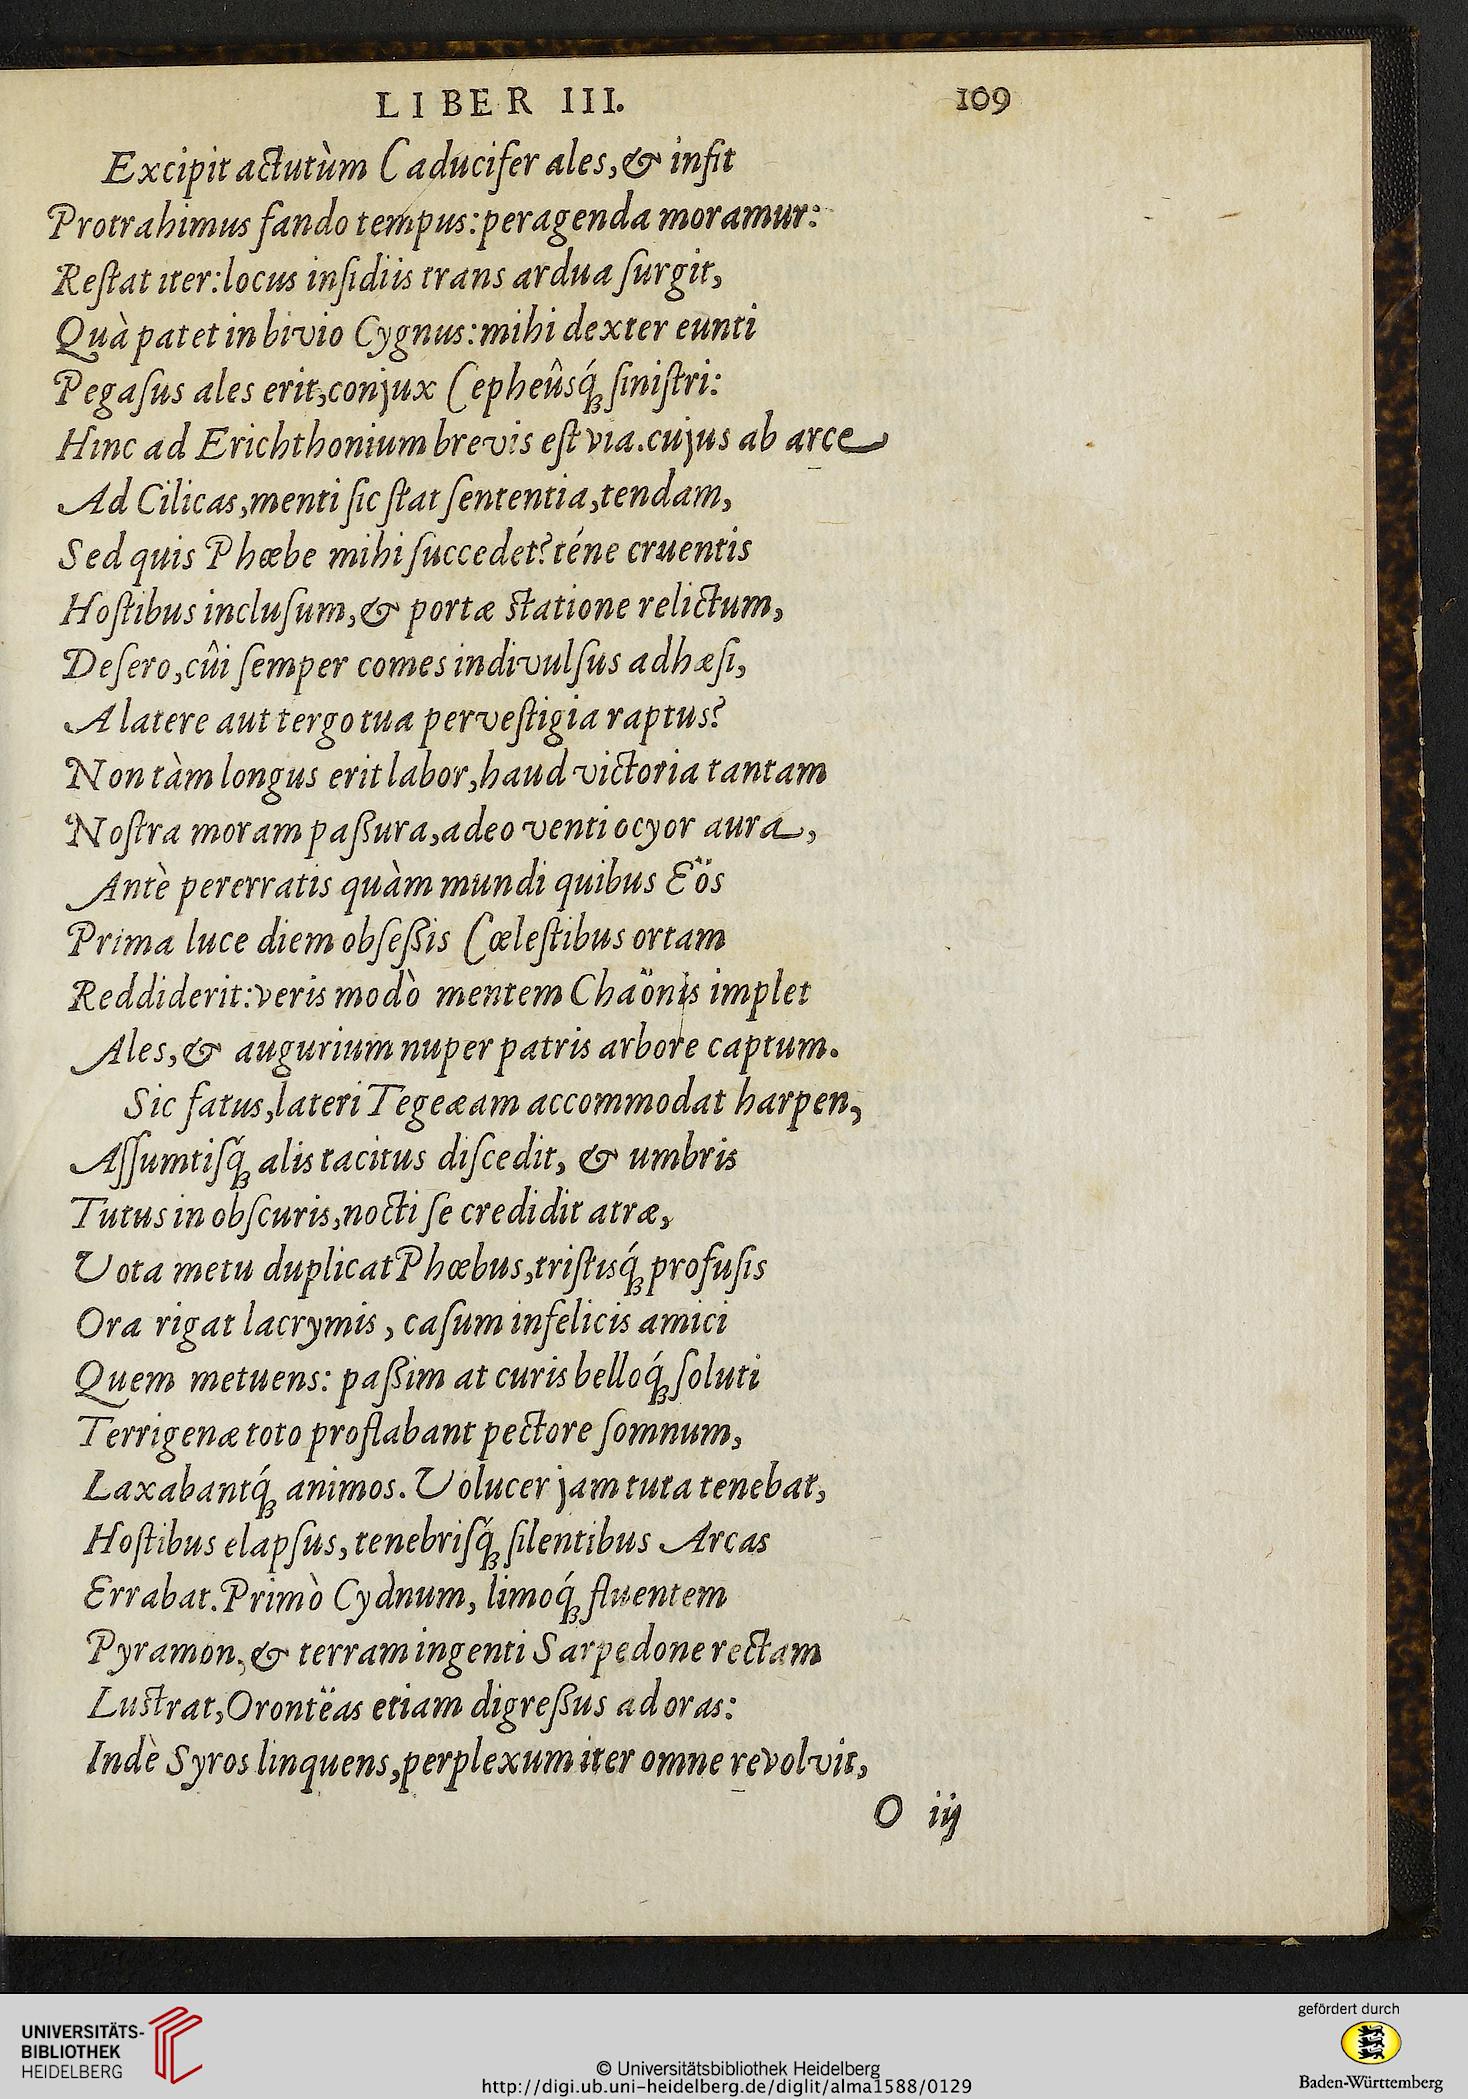 LIBER III. 109
Excipit actutùm Caducifer ales, & infit
Protrahimus fando tempus: peragenda moramur:
Reſtat iter: locus inſidiis trans ardua ſurgit,
Quà patet in bivio Cygnus: mihi dexter eunti
Pegaſus ales erit, conjux Cepheûsq́; ſiniſtri:
Hinc ad Erichthonium brevis eſt via. cujus ab arce
Ad Cilicas, menti ſic ſtat ſententia, tendam,
Sed quis Phœbe mihi ſuccedet? téne cruentis
Hoſtibus incluſum, & portæ ſtatione relictum,
Deſero, cûi ſemper comes indivulſus adhæſi,
A latere aut tergo tua per veſtigia raptus?
Non tàm longus erit labor, haud victoria tantam
Noſtra moram paßura, adeo venti ocyor aura,
Antè pererratis quàm mundi quibus Eös
Prima luce diem obſeßis Cœleſtibus ortam
Reddiderit: veris modò mentem Chaönis implet
Ales, & augurium nuper patris arbore captum.
Sic fatus, lateri Tegeæam accommodat harpen,
Aſſumtiſq́; alis tacitus diſcedit, & umbris
Tutus in obſcuris, nocti ſe credidit atræ,
Vota metu duplicat Phœbus, triſtisq́; profuſis
Ora rigat lacrymis, caſum infelicis amici
Quem metuens: paßim at curis belloq́; ſoluti
Terrigenæ toto proflabant pectore ſomnum,
Laxabantq́; animos. Volucer jam tuta tenebat,
Hoſtibus elapſus, tenebriſq́; ſilentibus Arcas
Errabat. Primò Cydnum, limoq́; fluentem
Pyramon, & terram ingenti Sarpedone rectam
Luſtrat, Orontëas etiam digreßus ad oras:
Indè Syros linquens, perplexum iter omne revolvit,
O iij
UNIVERSITÄTS-
BIBLIOTHEK
HEIDELBERG
© Universitätsbibliothek Heidelberg
http://digi.ub.uni-heidelberg.de/diglit/alma1588/0129
gefördert durch
Baden-Württemberg